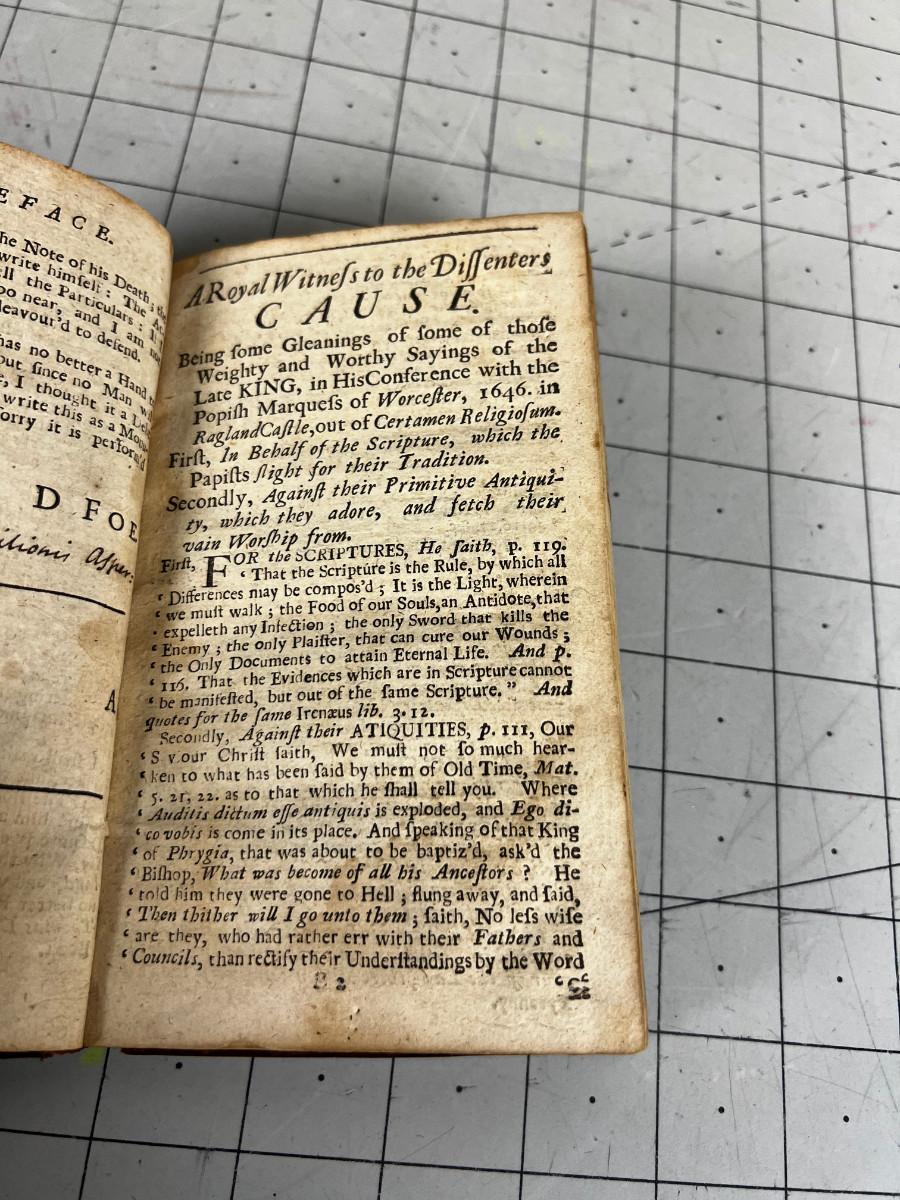 EFACE.
he Note of his Death;
write himself: The
ll the Particulars: I
oo near, and I am
deavour'd to defend.
has no better a Hand
but since no Man
, I thought it a
write this as a
orry it is perform'd
D FOE
A
A Royal Witneſs to the Diſſenters
CAUSE.
Being ſome Gleanings of ſome of thoſe
Weighty and Worthy Sayings of the
Late KING, in HisConference with the
Popiſh Marqueſs of Worceſter, 1646. in
RaglandCaſtle,out of Certamen Religioſum.
Firſt, In Behalf of the Scripture, which the
Papiſts ſlight for their Tradition.
Secondly, Againſt their Primitive Antiqui-
ty, which they adore, and fetch their
vain Worſhip from.
Firſt, FOR the SCRIPTURES, He ſaith, p. 119.
‘ That the Scripture is the Rule, by which all
‘ Differences may be compos'd ; It is the Light, wherein
‘ we muſt walk ; the Food of our Souls,an Antidote,that
‘ expelleth any Infection ; the only Sword that kills the
‘ Enemy ; the only Plaiſter, that can cure our Wounds ;
‘ the Only Documents to attain Eternal Life. And p.
‘ 116. That the Evidences which are in Scripture cannot
‘ be manifeſted, but out of the ſame Scripture.” And
quotes for the ſame Irenæus lib. 3.12.
Secondly, Againſt their ATIQUITIES, p. 111, Our
‘ S v our Chriſt ſaith, We muſt not ſo much hear-
‘ ken to what has been ſaid by them of Old Time, Mat.
‘ 5. 21, 22. as to that which he ſhall tell you. Where
‘ Auditis dictum eſſe antiquis is exploded, and Ego di-
‘ co vobis is come in its place. And ſpeaking of that King
‘ of Phrygia, that was about to be baptiz'd, ask'd the
‘ Biſhop, What was become of all his Anceſtors ? He
‘ told him they were gone to Hell ; flung away, and ſaid,
‘ Then thither will I go unto them ; ſaith, No leſs wiſe
‘ are they, who had rather err with their Fathers and
‘ Councils, than rectify their Underſtandings by the Word
B 2